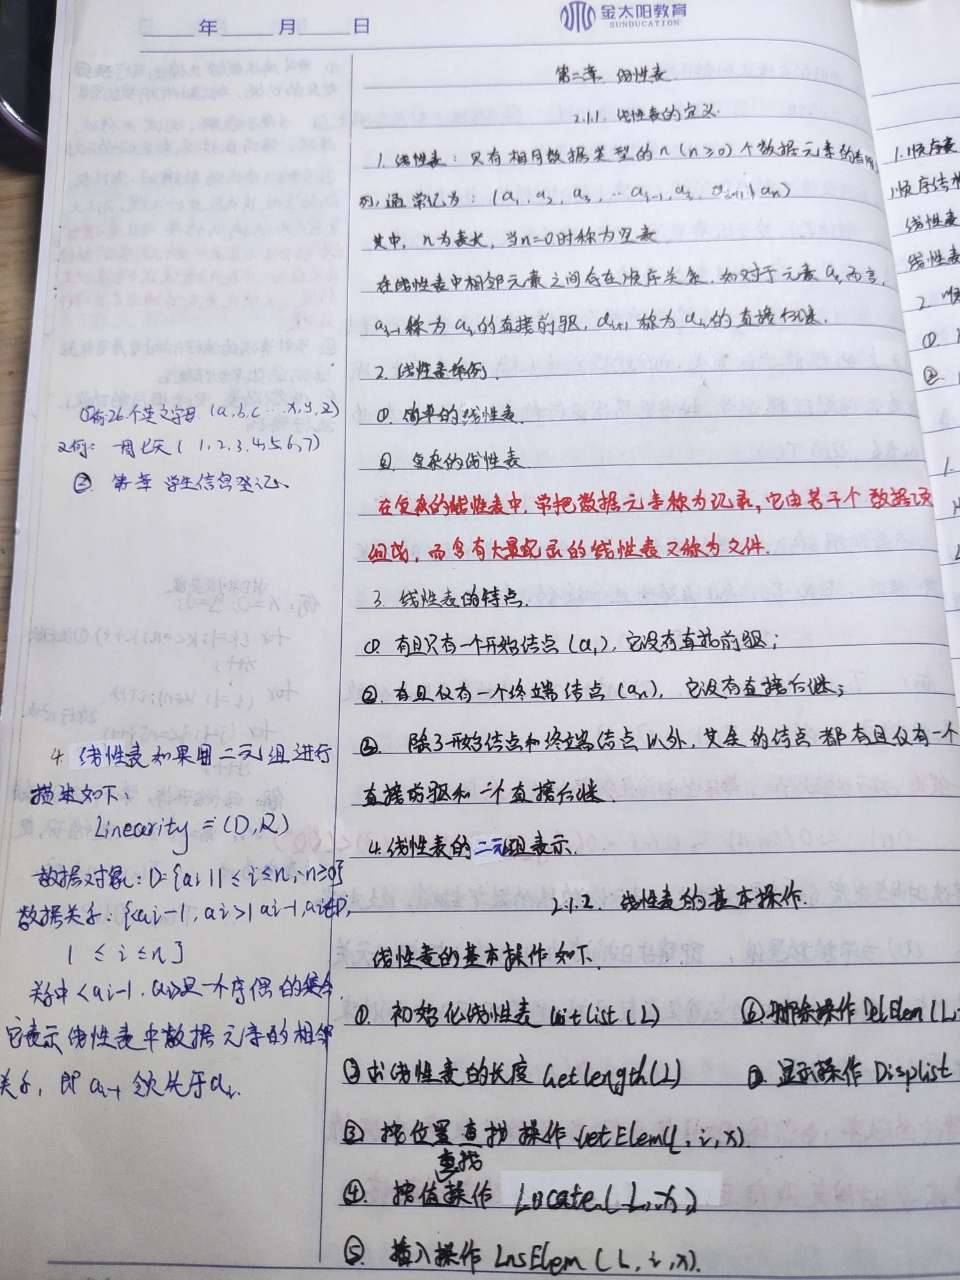 年 月 日
金太阳教育
SUNDUCATION
第二章 线性表
2.1.1. 线性表的定义
1. 线性表：具有相同数据类型的n（n≥0）个数据元素的有限
列，通常记为：（a₁, a₂, a₃, … aᵢ₋₁, aᵢ, aᵢ₊₁, aₙ）
其中，n为表长，当n=0时称为空表
在线性表中相邻元素之间存在顺序关系，如对于元素aᵢ而言，
aᵢ₋₁称为aᵢ的直接前驱，aᵢ₊₁称为aᵢ的直接后继.
2. 线性表举例.
①. 简单的线性表.
②. 复杂的线性表
在复杂的线性表中，常把数据元素称为记录，它由若干个数据项
组成，而含有大量记录的线性表又称为文件.
3. 线性表的特点.
① 有且只有一个开始结点（a₁），它没有直接前驱；
② 有且仅有一个终端结点（aₙ），它没有直接后继；
③. 除了开始结点和终端结点以外，其余的结点都有且仅有一个
直接前驱和一个直接后继.
4. 线性表的二元组表示.
2.1.2. 线性表的基本操作.
线性表的基本操作如下.
①. 初始化线性表InitList(L)
⑥. 删除操作 DelElem(L,
② 求线性表的长度 GetLength(L)
⑦. 显示操作 Displist
③ 按位置查找操作 GetElem(L, i, x).
查找
④. 按值操作 Locate(L, x)
⑤. 插入操作 InsElem(L, i, x).
26个英文字母（a, b, c … x, y, z）
又例：一周七天（1, 2, 3, 4, 5, 6, 7）
② 学生信息登记、
4. 线性表如果用二元组进行
描述如下：
Linearity = (D, R)
数据对象：D={ai | 1≤i≤n, n≥0}
数据关系：{<ai-1, ai> | ai-1, ai∈D,
1≤i≤n]
关系中<ai-1, ai>是一个序偶的集合
它表示线性表中数据元素的相邻
关系，即aᵢ₋₁领先于aᵢ.
1. 顺序表
线性表
线性表
2.
①.
②.
1.